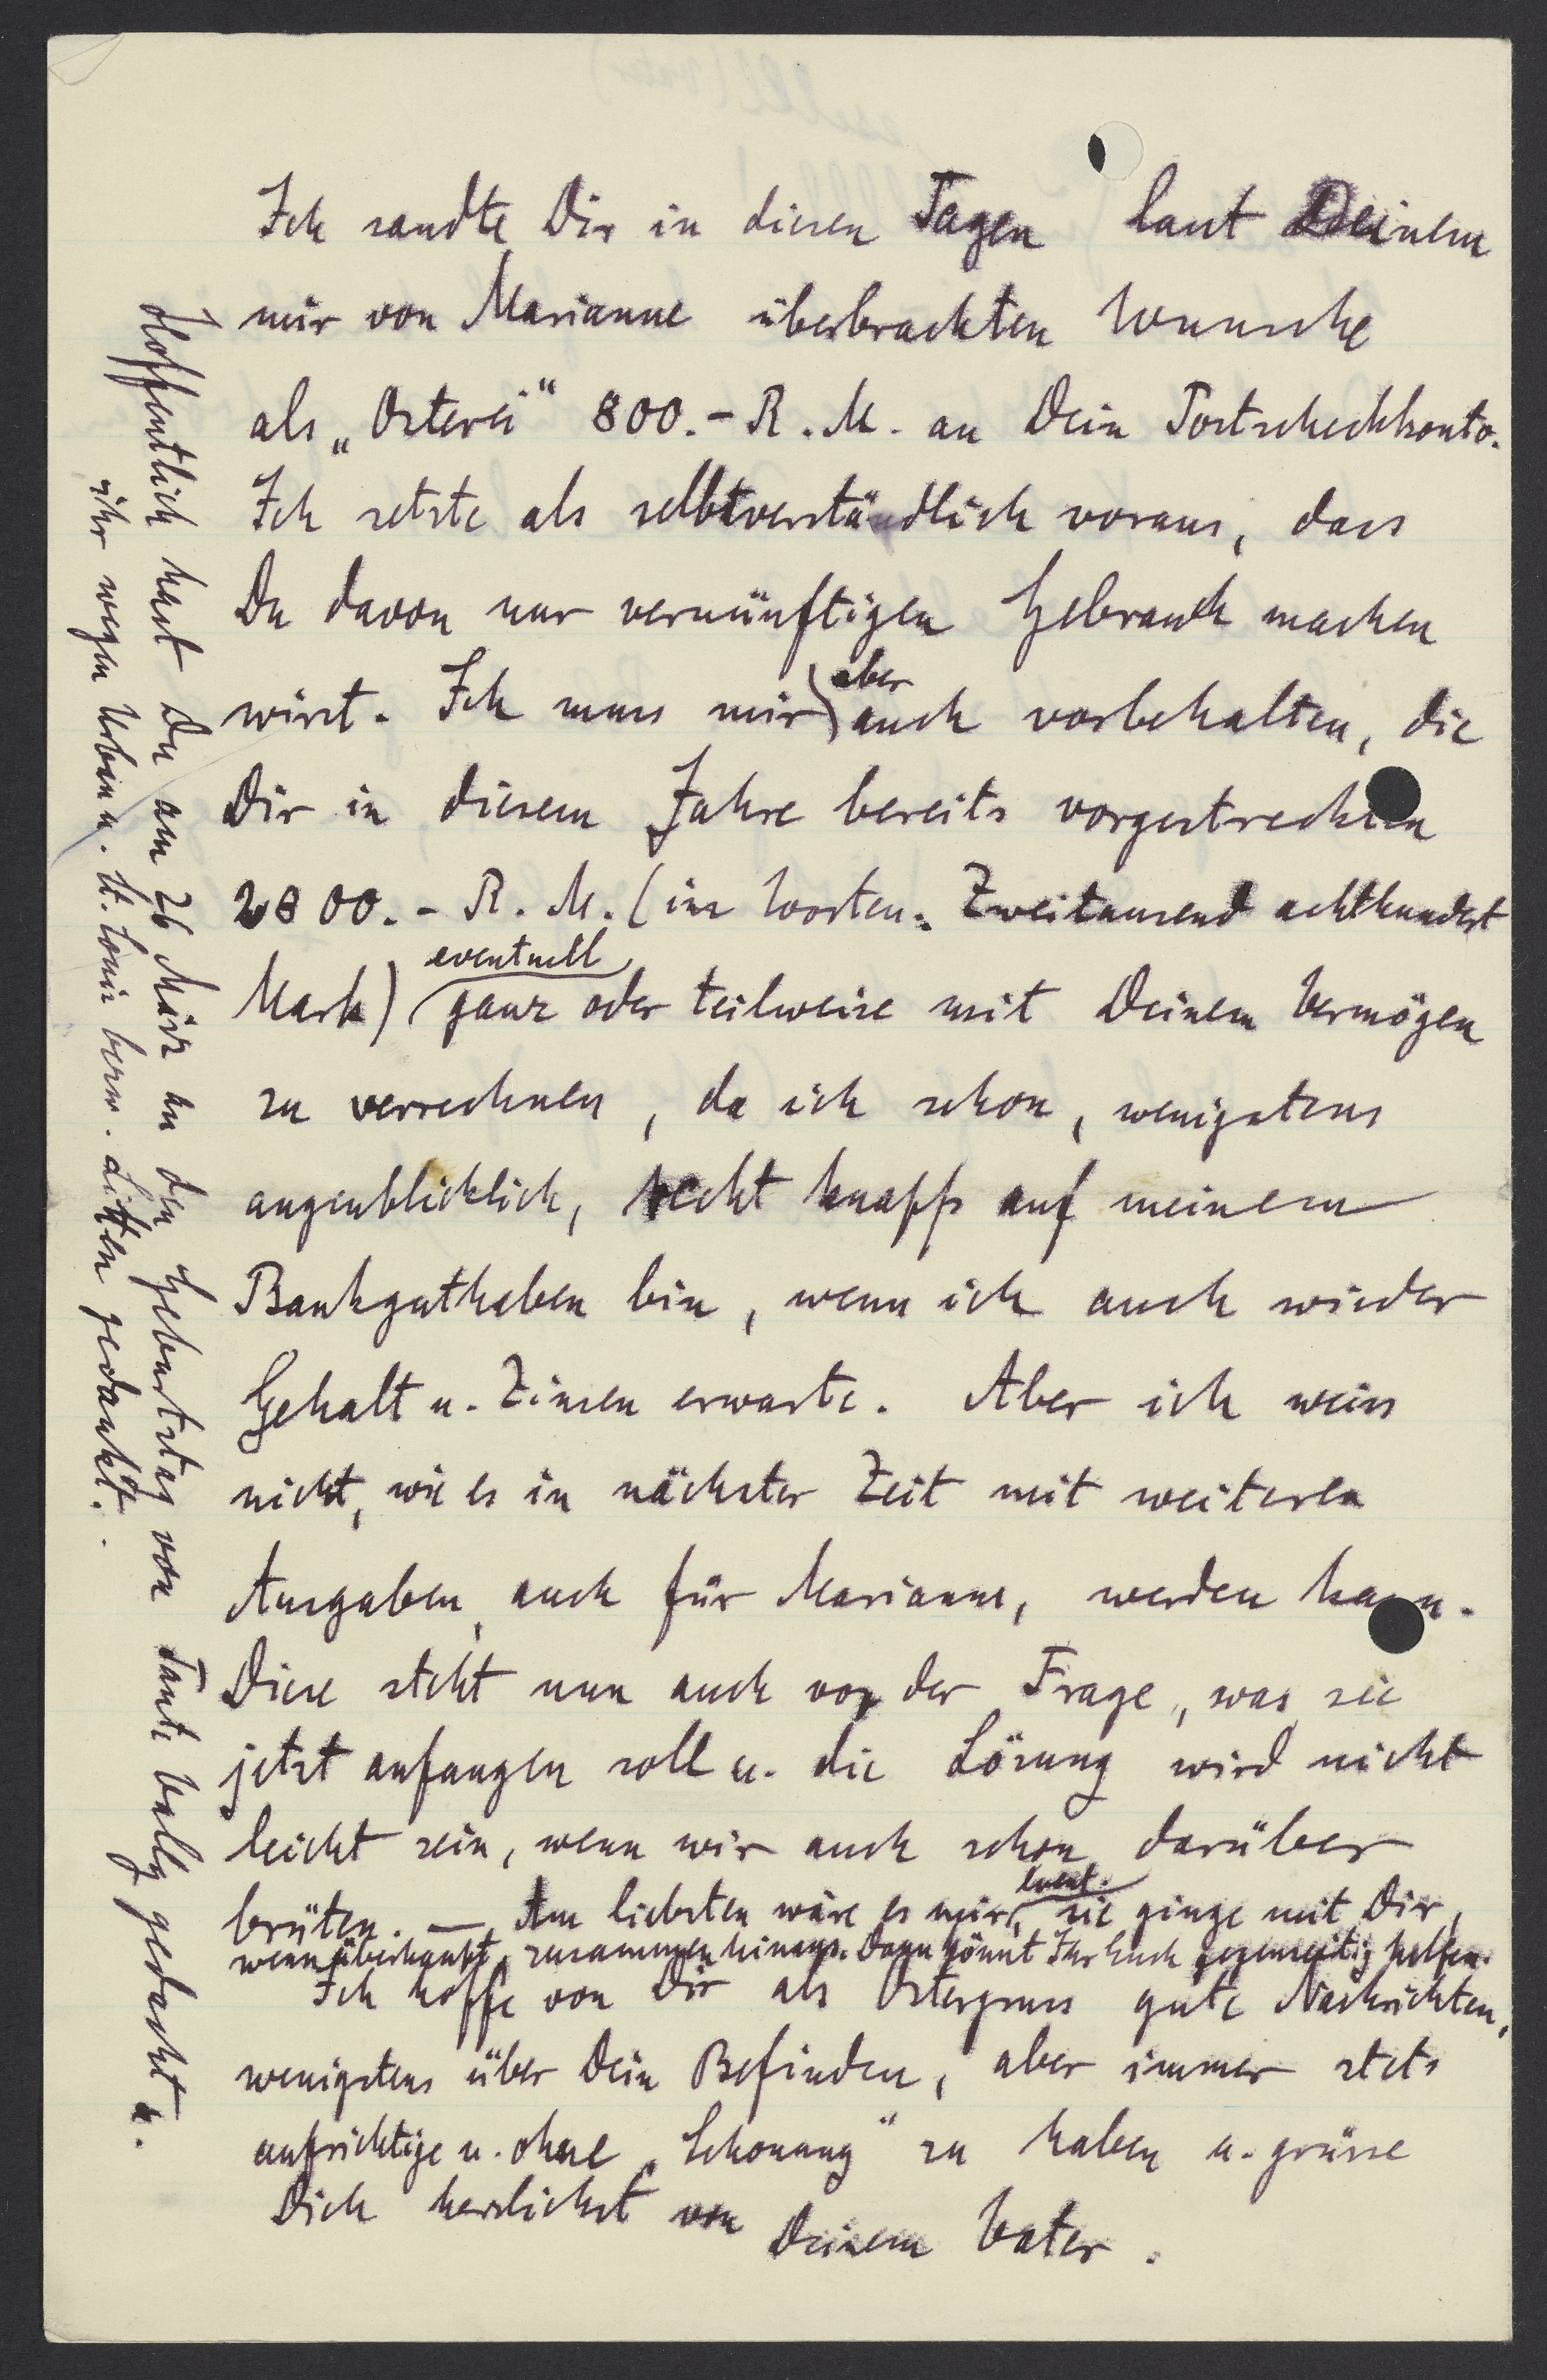 Ich sandte Dir in diesen Tagen laut Deinem
mir von Marianne überbrachten Wunsche
als „Osterei" 800.- R. M. an Dein Postscheckkonto.
Ich setzte als selbstverständlich voraus, dass
Du davon nur vernünftigen Gebrauch machen
wirst. Ich muss mir aber auch vorbehalten, die
Dir in diesem Jahre bereits vorgestreckten
2800.- R. M. (in Worten: Zweitausend achthundert
Mark) eventuell ganz oder teilweise mit Deinem Vermögen
zu verrechnen, da ich schon, wenigstens
augenblicklich, recht knapp auf meinem
Bankguthaben bin, wenn ich auch wieder
Gehalt u. Zinsen erwarte. Aber ich weiss
nicht, wie es in nächster Zeit mit weiteren
Ausgaben, auch für Marianne, werden kann.
Diese steht nun auch vor der Frage, was sie
jetzt anfangen soll u. die Lösung wird nicht
leicht sein, wenn wir auch schon darüber
brüten. — Am liebsten wäre es mir, event. sie ginge mit Dir,
wenn überhaupt, zusammen hinaus. Dann könnt Ihr Euch gegenseitig helfen.
Ich hoffe von Dir als Ostergruss gute Nachrichten,
wenigstens über Dein Befinden, aber immer stets
aufrichtige u. ohne „Schonung" zu haben u. grüsse
Dich herzlichst von
Deinem Vater.
Hoffentlich hast Du am 26 März an den Geburtstag von Tante Vally gedacht u.
ihr wegen Urbin u. St. Louis bezw. gedankt.